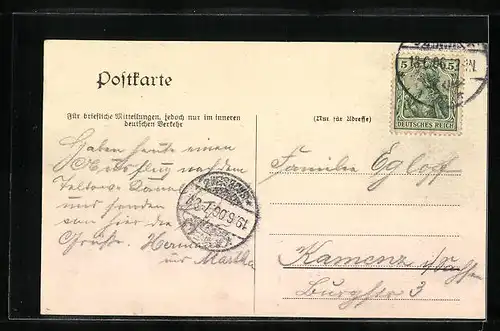 Postkarte
Für briefliche Mitteilungen, jedoch nur im inneren
deutschen Verkehr
(Nur für Adresse)
5 5
DEUTSCHES REICH
18.6.06
19.6.06.
Haben heute einen
Ausflug nach dem
Teltow-Canal
und senden
von hier die
Grüße. Hermann
und Martha
Familie Egloff
Kamenz i/Sachsen
Burgstr 3